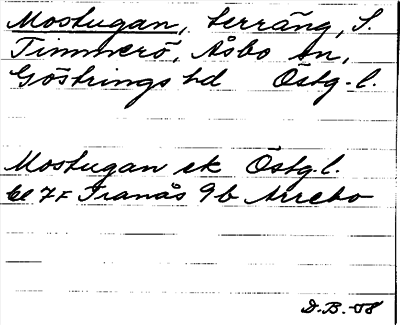 Mostugan, terräng, S.
Timmerö, Åsbo sn,
Göstrings hd Östg. l.
Mostugan ek Östg. l.
bl 7F Tranås 9b Arrebo
D.B. -58